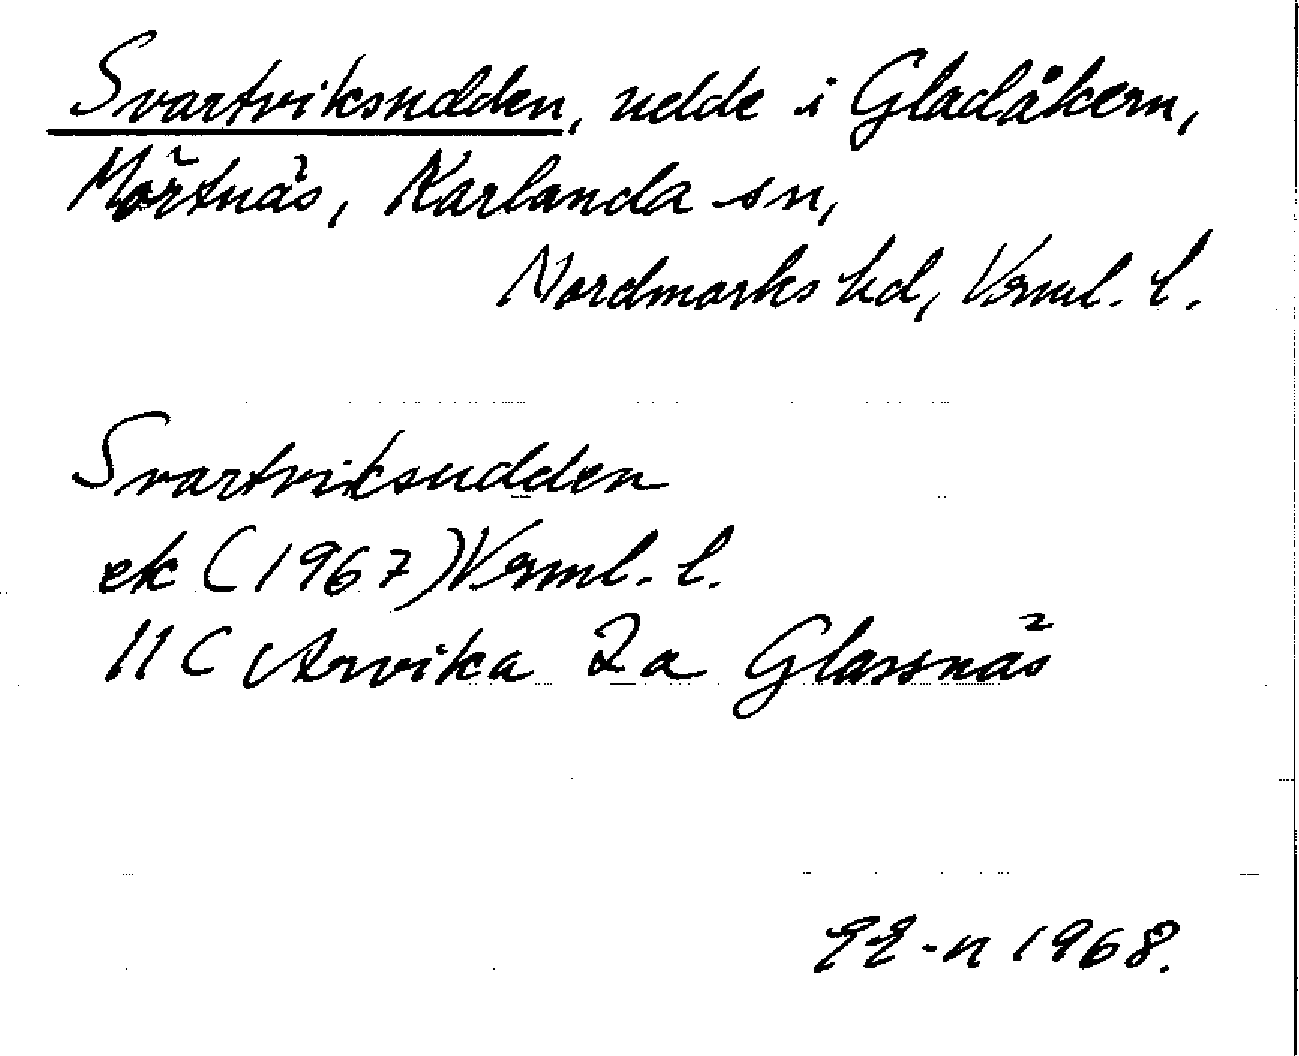 Svartviksudden, udde i Gladåkern,
Mörtnäs, Karlanda sn,
Nordmarks hd, Verml. l.
Svartviksudden
ek (1967) Verml. l.
11 C Arvika 2a Glassnäs
1968.